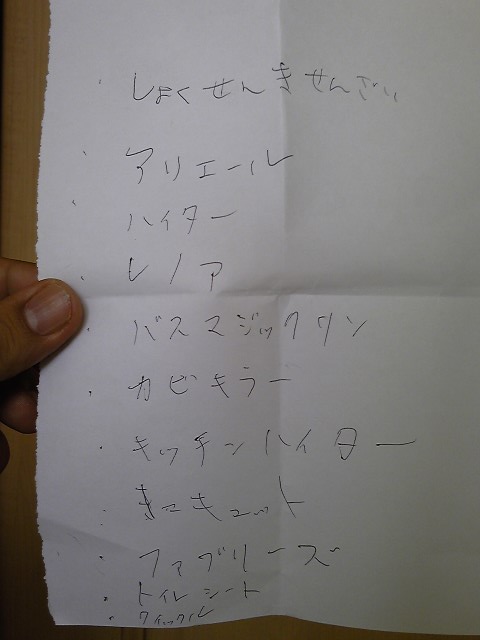 ・しょくせんきせんざい
・アリエール
・ハイター
・レノア
・バスマジックリン
・カビキラー
・キッチンハイター
・キュキュット
・ファブリーズ
・トイレシート
・クイックル